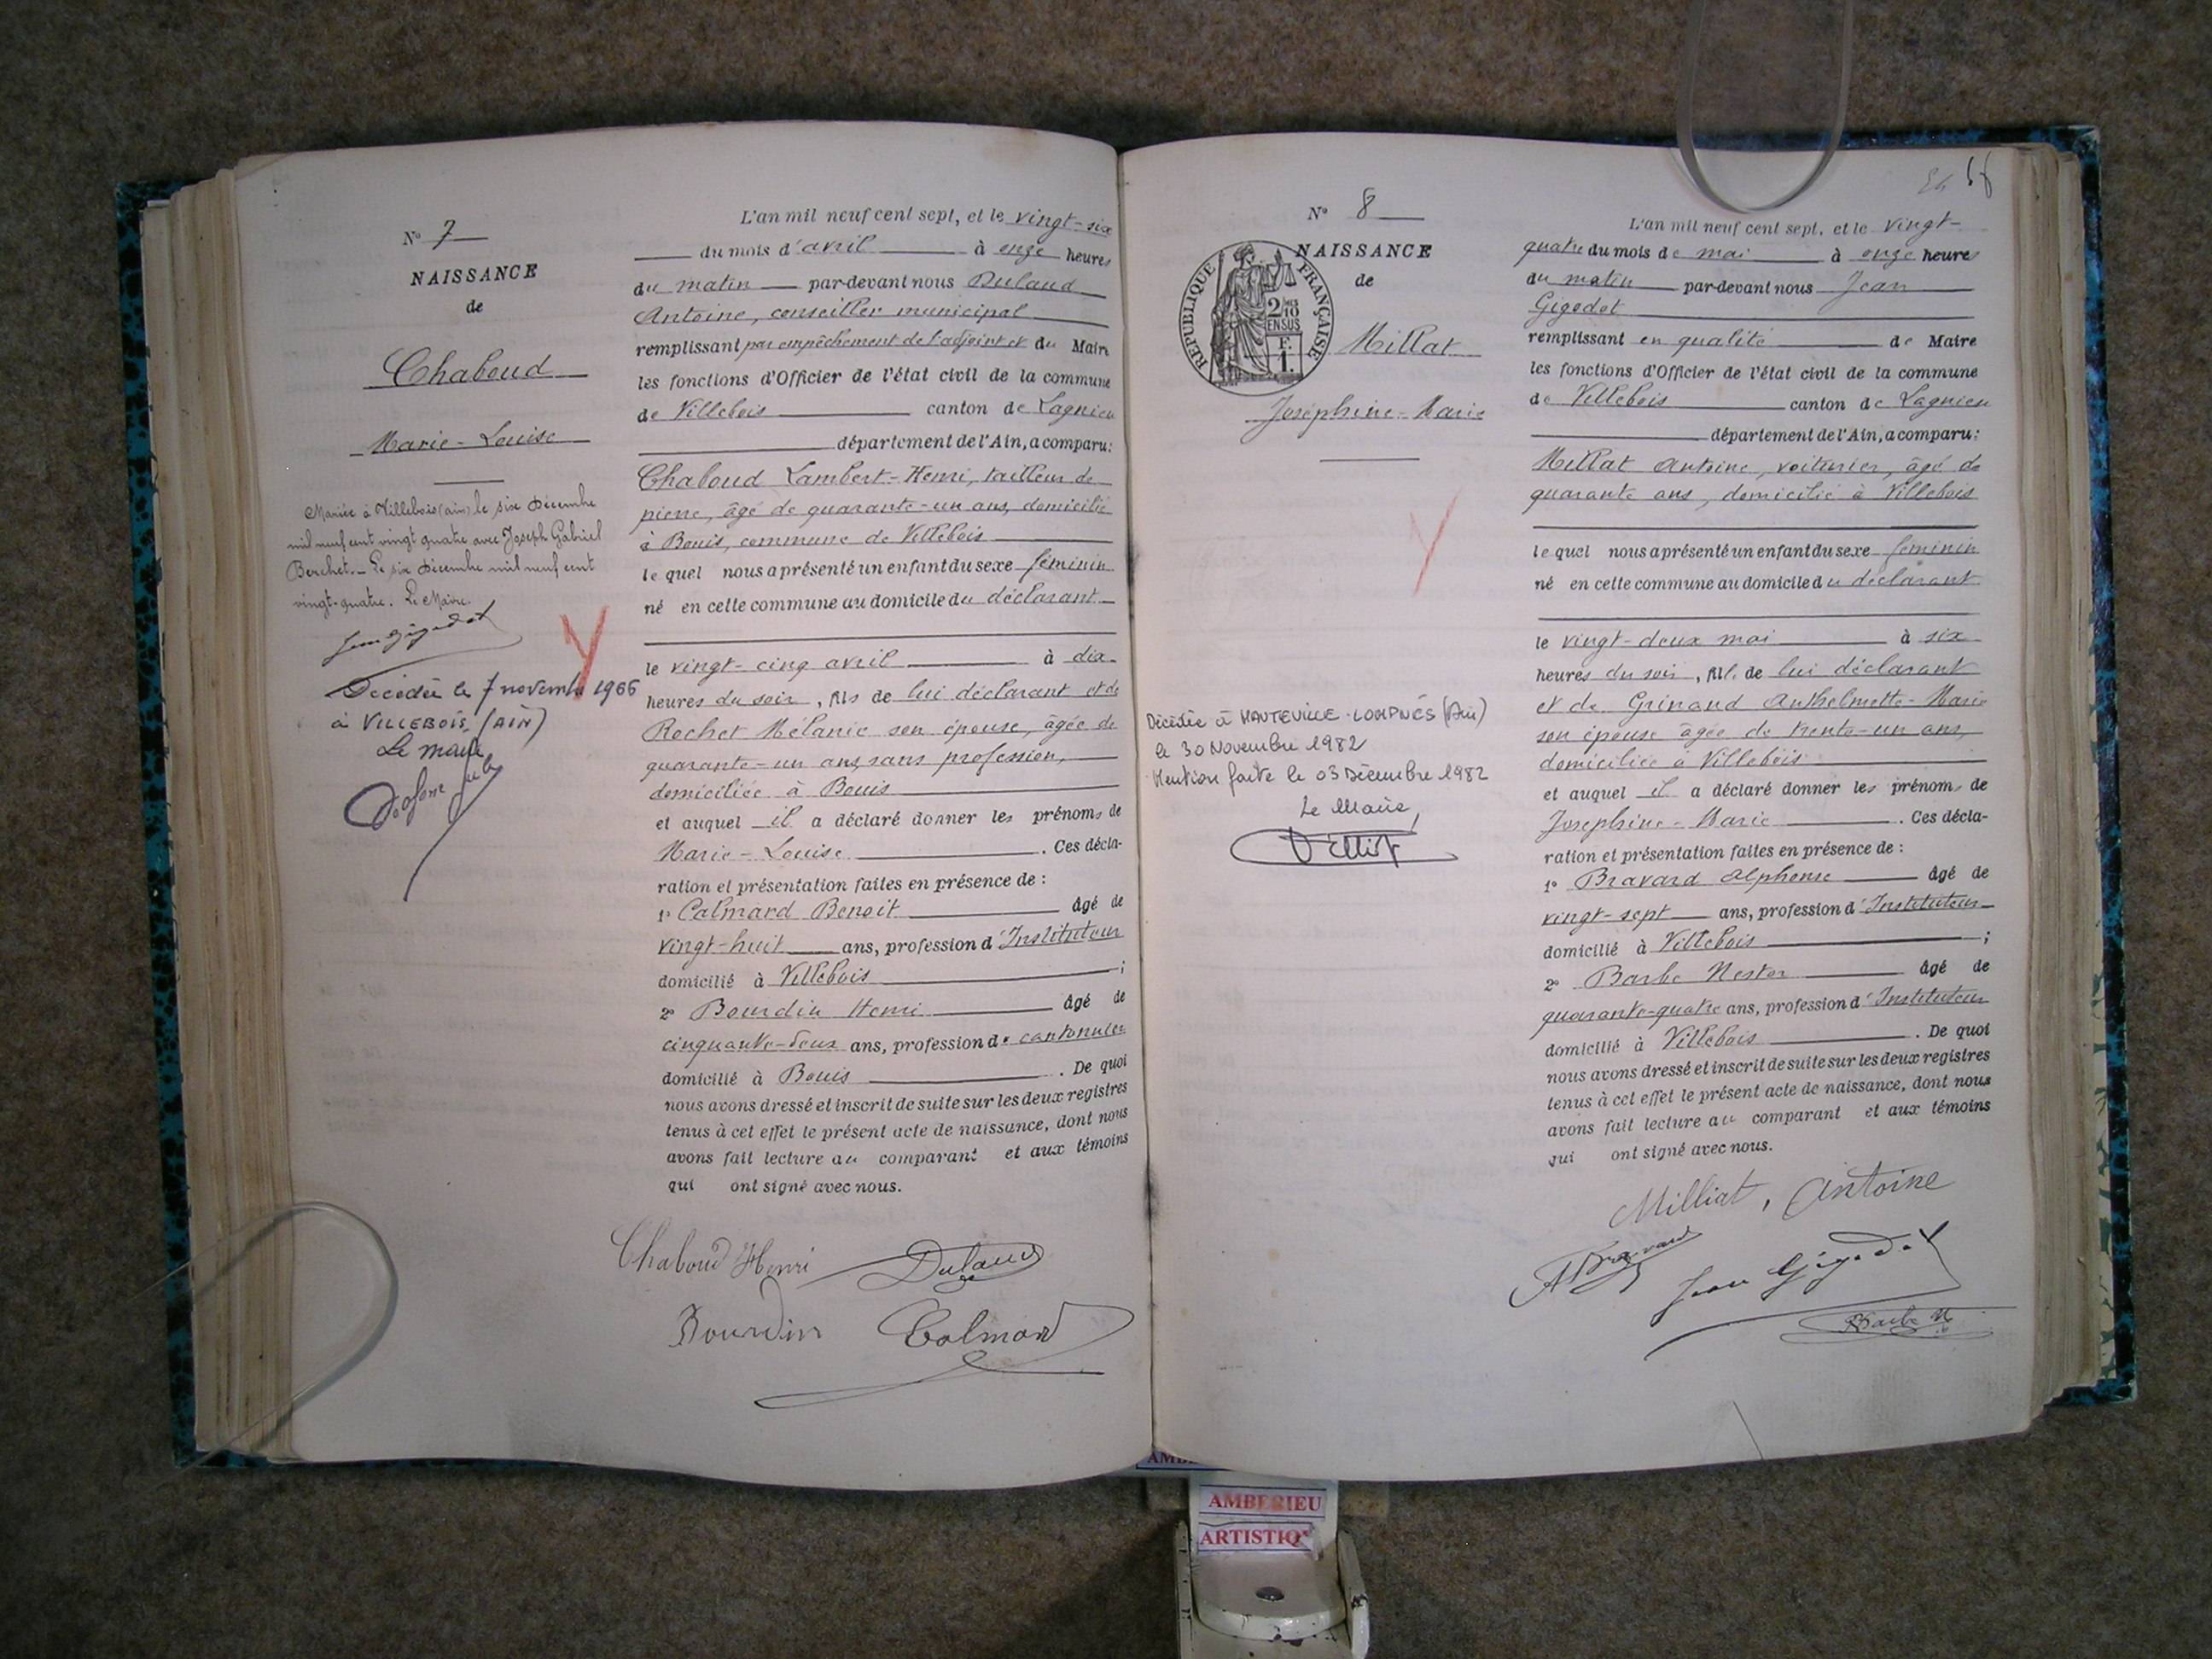 N° 7
NAISSANCE
de
Chaboud
Marie-Louise
Mariée à Villebois (ain) le six décembre
mil neuf cent vingt quatre avec Joseph Gabriel
Berchet. _ Le six décembre mil neuf cent
vingt-quatre. Le Maire.
Jean Gigodot
Décédée le 7 novembre 1966
à VILLEBOIS (AIN)
Le maire
L'an mil neuf cent sept, et le vingt-six
du mois d'avril à onze heures
du matin par-devant nous Dulaud
Antoine, conseiller municipal
remplissant par empêchement de l'adjoint et du Maire
les fonctions d'Officier de l'état civil de la commune
de Villebois canton de Lagnieu
département de l'Ain, a comparu:
Chaboud Lambert-Henri, tailleur de
pierre, âgé de quarante-un ans, domicilié
à Bouis, commune de Villebois
lequel nous a présenté un enfant du sexe féminin
né en cette commune au domicile du déclarant
le vingt-cinq avril à dix
heures du soir, fils de lui déclarant et de
Rochet Mélanie son épouse, âgée de
quarante-un ans, sans profession,
domiciliée à Bouis
et auquel il a déclaré donner les prénoms de
Marie-Louise. Ces décla-
ration et présentation faites en présence de:
1° Calmard Benoit âgé de
vingt-huit ans, profession d'Instituteur
domicilié à Villebois;
2° Bourdin Henri âgé de
cinquante-deux ans, profession de cantonnier
domicilié à Bouis. De quoi
nous avons dressé et inscrit de suite sur les deux registres
tenus à cet effet le présent acte de naissance, dont nous
avons fait lecture au comparant et aux témoins
qui ont signé avec nous.
Chaboud Henri Dulaud
Bourdin Calmard
N° 8
NAISSANCE
de
REPUBLIQUE FRANÇAISE
2/10 EN SUS
F. 1.
Millat
Joséphine-Marie
Décédée à HAUTEVILLE-LOMPNÈS (Ain)
le 30 Novembre 1982
Mention faite le 03 Décembre 1982
Le Maire,
L'an mil neuf cent sept, et le vingt-
quatre du mois de mai à onze heures
du matin par-devant nous Jean
Gigodot
remplissant en qualité de Maire
les fonctions d'Officier de l'état civil de la commune
de Villebois canton de Lagnieu
département de l'Ain, a comparu:
Millat Antoine, voiturier, âgé de
quarante ans, domicilié à Villebois
lequel nous a présenté un enfant du sexe féminin
né en cette commune au domicile du déclarant
le vingt-deux mai à six
heures du soir, fille de lui déclarant
et de Grinand Anthelmette-Marie
son épouse âgée de trente-un ans,
domiciliée à Villebois
et auquel il a déclaré donner les prénoms de
Joséphine-Marie. Ces décla-
ration et présentation faites en présence de:
1° Bravard Alphonse âgé de
vingt-sept ans, profession d'Instituteur
domicilié à Villebois;
2° Barbe Nestor âgé de
quarante-quatre ans, profession d'Instituteur
domicilié à Villebois. De quoi
nous avons dressé et inscrit de suite sur les deux registres
tenus à cet effet le présent acte de naissance, dont nous
avons fait lecture au comparant et aux témoins
qui ont signé avec nous.
Milliat, Antoine
A Bravard Jean Gigodot
Barbe N
AMBERIEU
ARTISTIQ